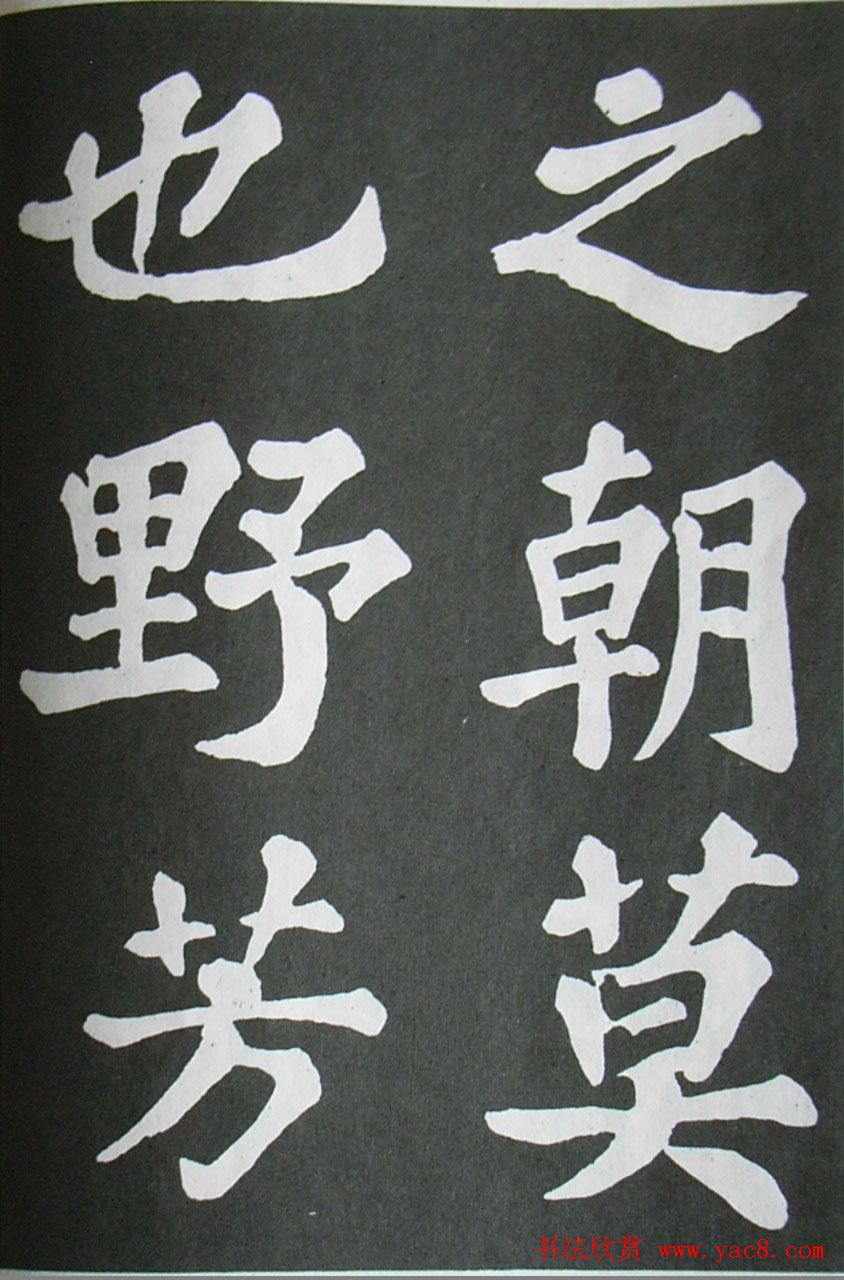 之朝莫
也野芳
书法欣赏 www.yac8.com